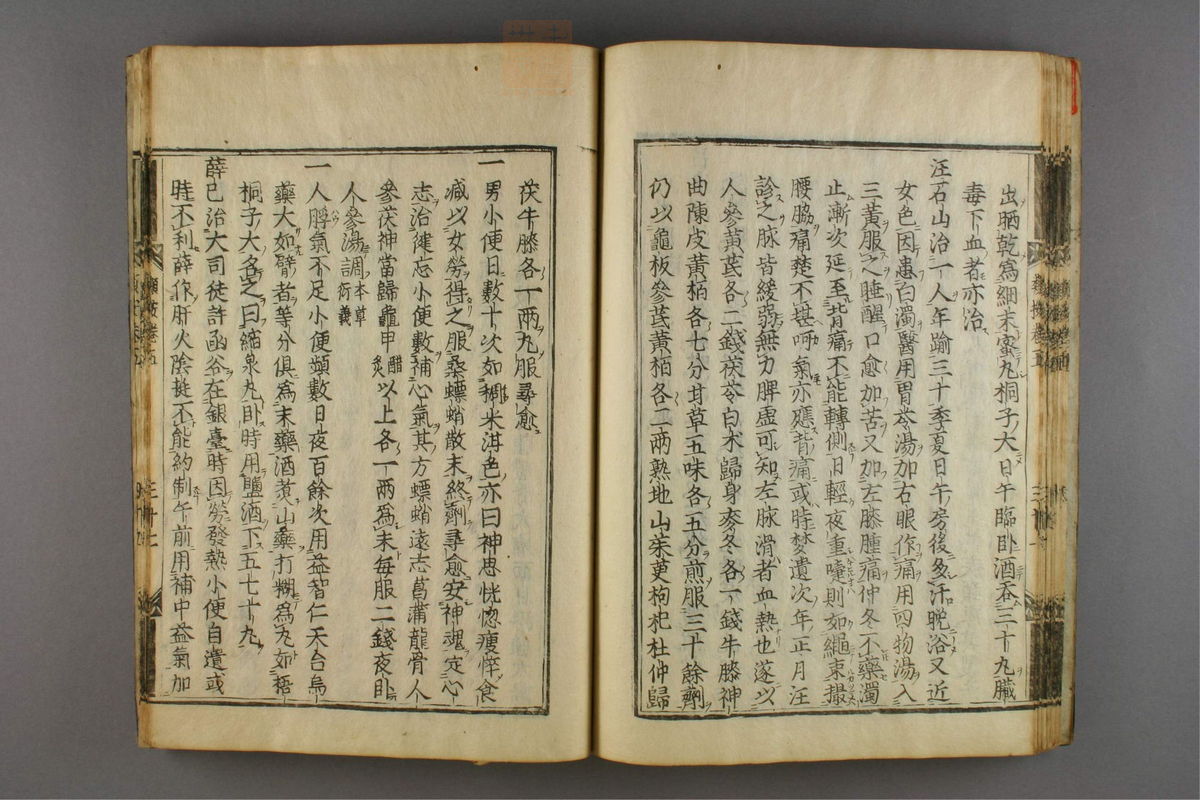 出晒乾爲細末蜜丸桐子大日午臨卧酒吞三十丸臓
毒下血者亦治
汪石山治一人年踰三十季夏日午房後多汗晩浴又近
女色因患白濁醫用胃苓湯加右眼作痛用四物湯入
三黄服之睡醒口愈加苦又加左膝腫痛仲冬不藥濁
止漸次延至背痛不能轉側日輕夜重嚏則如繩束撮
腰脇痛楚不堪呵氣亦應背痛或時夢遺次年正月汪
診之脉皆緩弱無力脾虚可知左脉滑者血熱也遂以
人參黄芪各二錢茯苓白术歸身麥冬各一錢牛膝神
曲陳皮黄栢各七分甘草五味各五分煎服三十餘劑
仍以龜板參芪黄栢各二兩熟地山茱萸枸杞杜仲歸
茯牛膝各一兩丸服尋愈
一男小便日數十次如稠米泔色亦曰神思恍惚痩悴食
减以女勞得之服桑螵蛸散末終劑尋愈安神魂定心
志治健忘小便數補心氣其方螵蛸遠志菖蒲龍骨人
參茯神當歸龜甲醋炙以上各一兩爲末毎服二錢夜卧
人參湯調本草衍義
一人脬氣不足小便頻數日夜百餘次用益智仁天台烏
藥大如臂者等分俱爲末藥酒煮山藥打糊爲丸如梧
桐子大名之曰縮泉丸卧時用盬酒下五七十丸
薛己治大司徒許函谷在銀臺時因勞發熱小便自遺或
時不利薛作肝火陰挺不能約制午前用補中益氣加